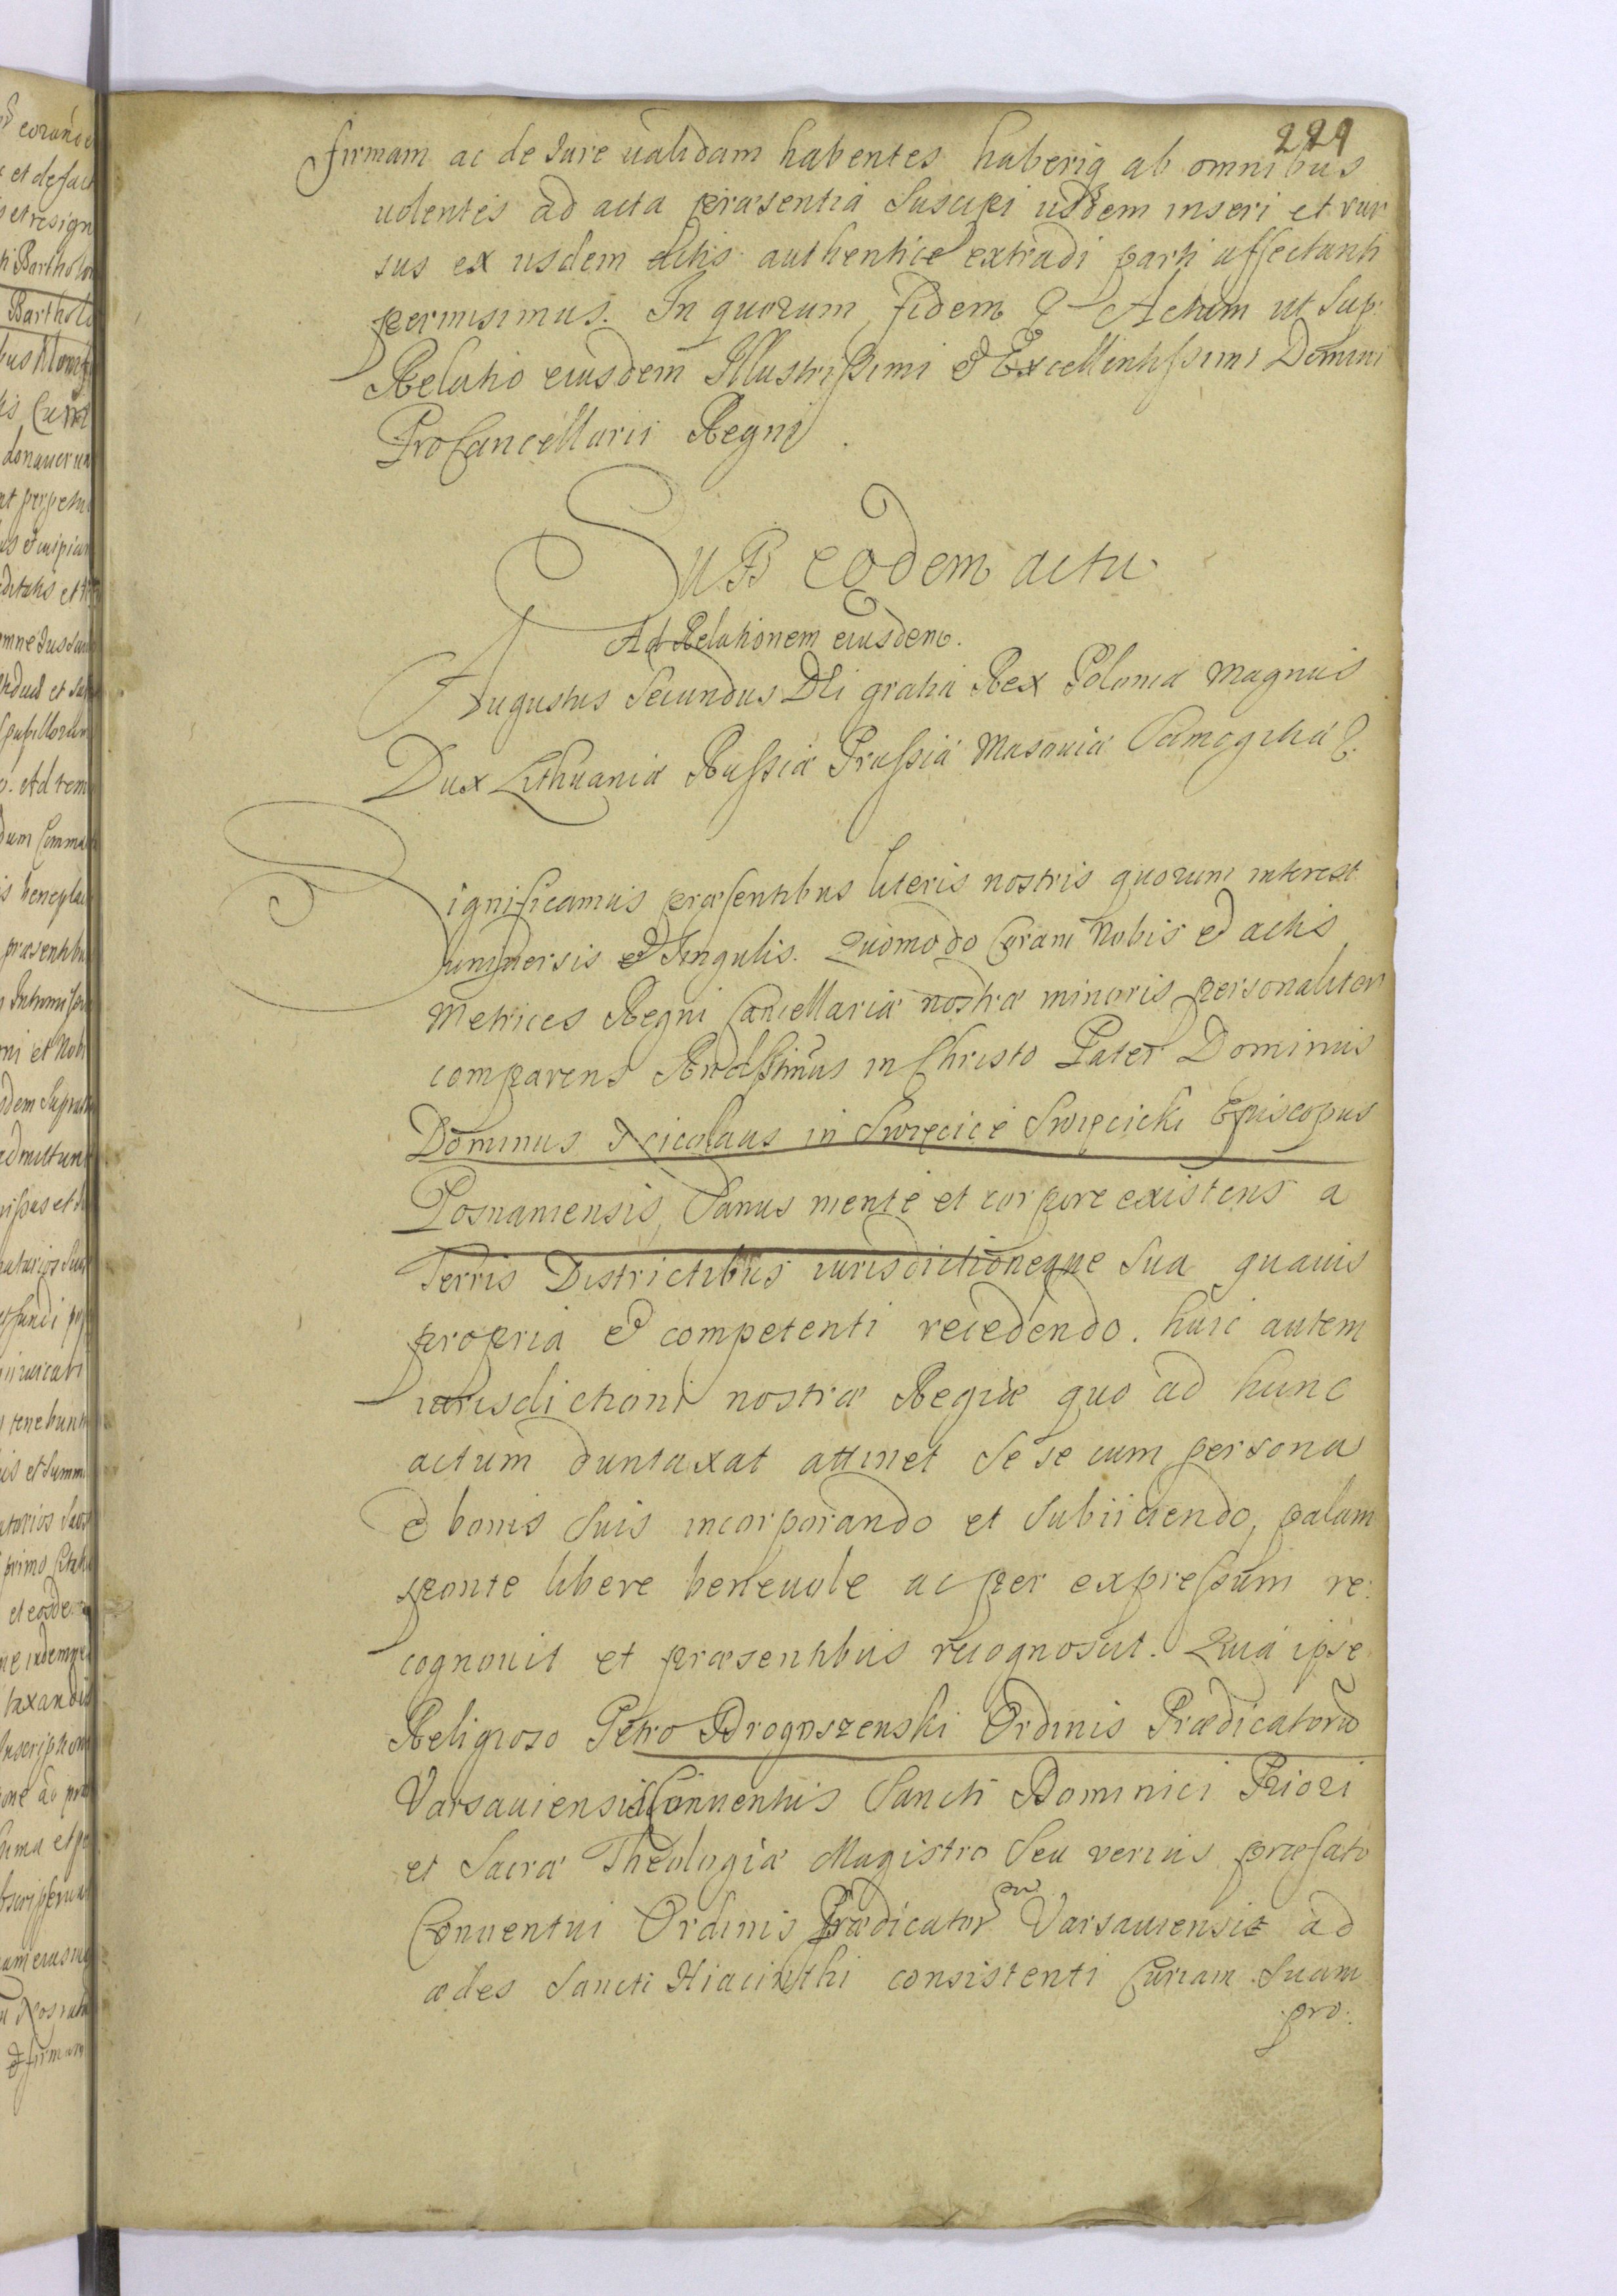 229
firmam ac de Jure ualidam habentes haberiq ab omnibus
uolentes ad acta præsentia Suscipi iisdem inseri et rur
sus ex iisdem Actis authentice extradi parti affectanti
permisimus. In quorum fidem & Actum ut Sup:
Relatio eiusdem Illustrissimi & Excellentissimi Domini
ProCancellarii Regni.
SUB eodem actu
Ad Relationem eiusdem.
Augustus Secundus Dei gratia Rex Poloniæ Magnus
Dux Lithuaniæ Russiæ Prussiæ Masouiæ Samogitiæ &.
Significamus præsentibus literis nostris quorum interest
uniuersis & Singulis. Quomodo Coram Nobis & actis
Metrices Regni Cancellariæ nostræ minoris personaliter
comparens Rndssimus in Christo Pater Dominus
Dominus Nicolaus in Swięcice Swięcicki Episcopus
Posnaniensis, Sanus mente et corpore existens a
Terris Districtibus iurisdictioneque Sua quauis
propria & competenti recedendo. huic autem
iurisdictioni nostræ Regiæ quo ad hunc
actum duntaxat attinet Se se cum persona
& bonis Suis incorporando et Subiiciendo, palam
sponte libere beneuole ac per expressum re:
cognouit et præsentibus recognoscit. Quia ipse
Religioso Petro Drogoszewski Ordinis Prædicatorũ
Varsauiensis Conuentus Sancti Dominici Priori
et Sacræ Theologiæ Magistro Seu verius præfato
Conuentui Ordinis Prædicatorum Varsauiensis ad
ædes Sancti Hiacinthi consistenti Curiam Suam
pro: